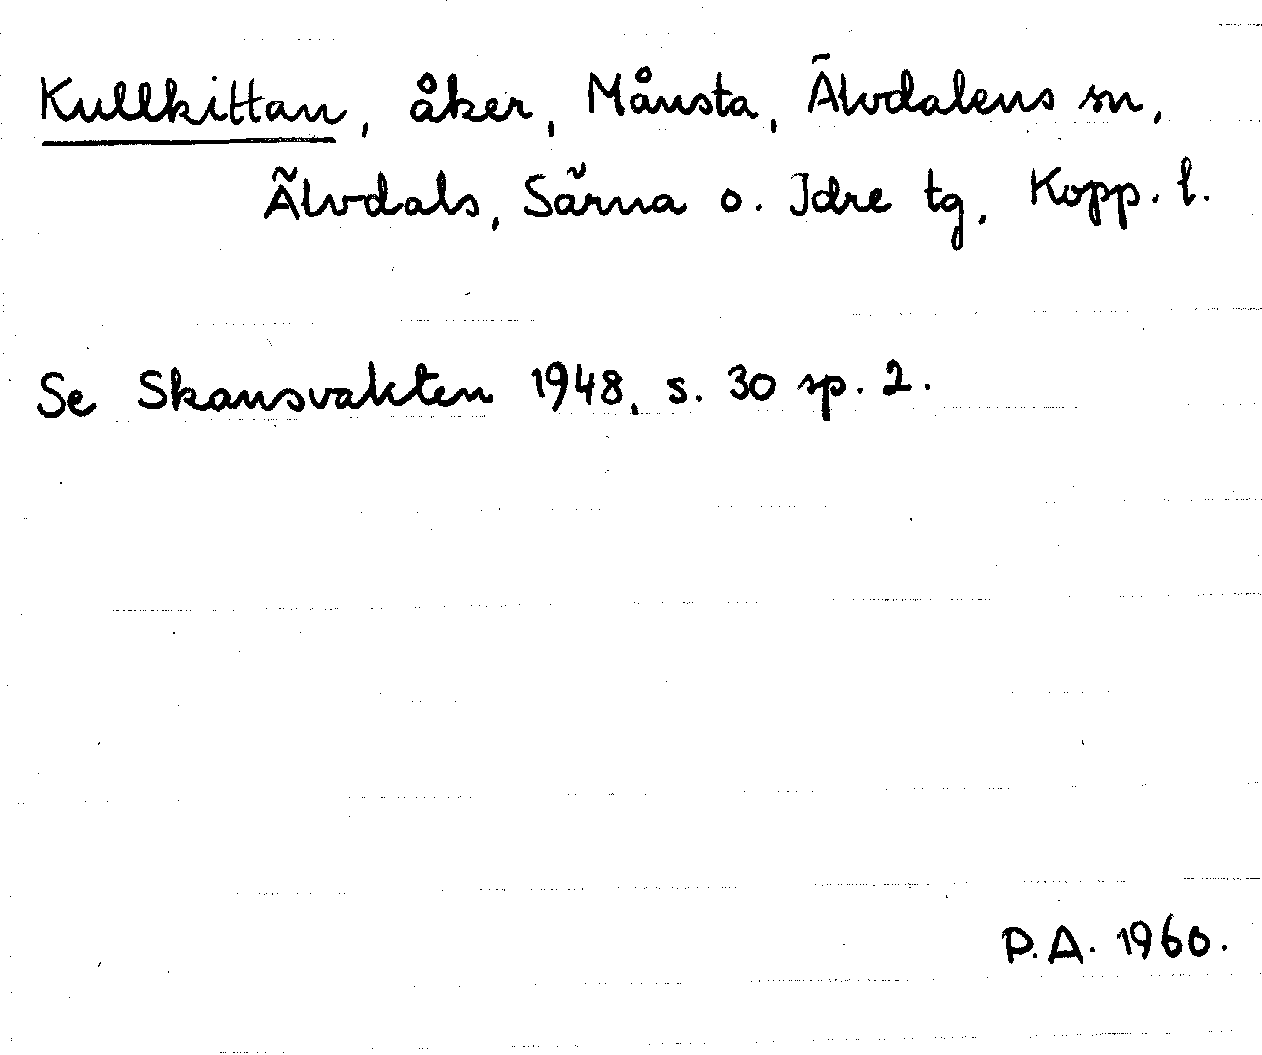 Kullkittan, åker, Månsta, Älvdalens sn,
Älvdals, Särna o. Idre tg, Kopp. l.
Se Skansvakten 1948, s. 30 sp. 2.
P.A. 1960.